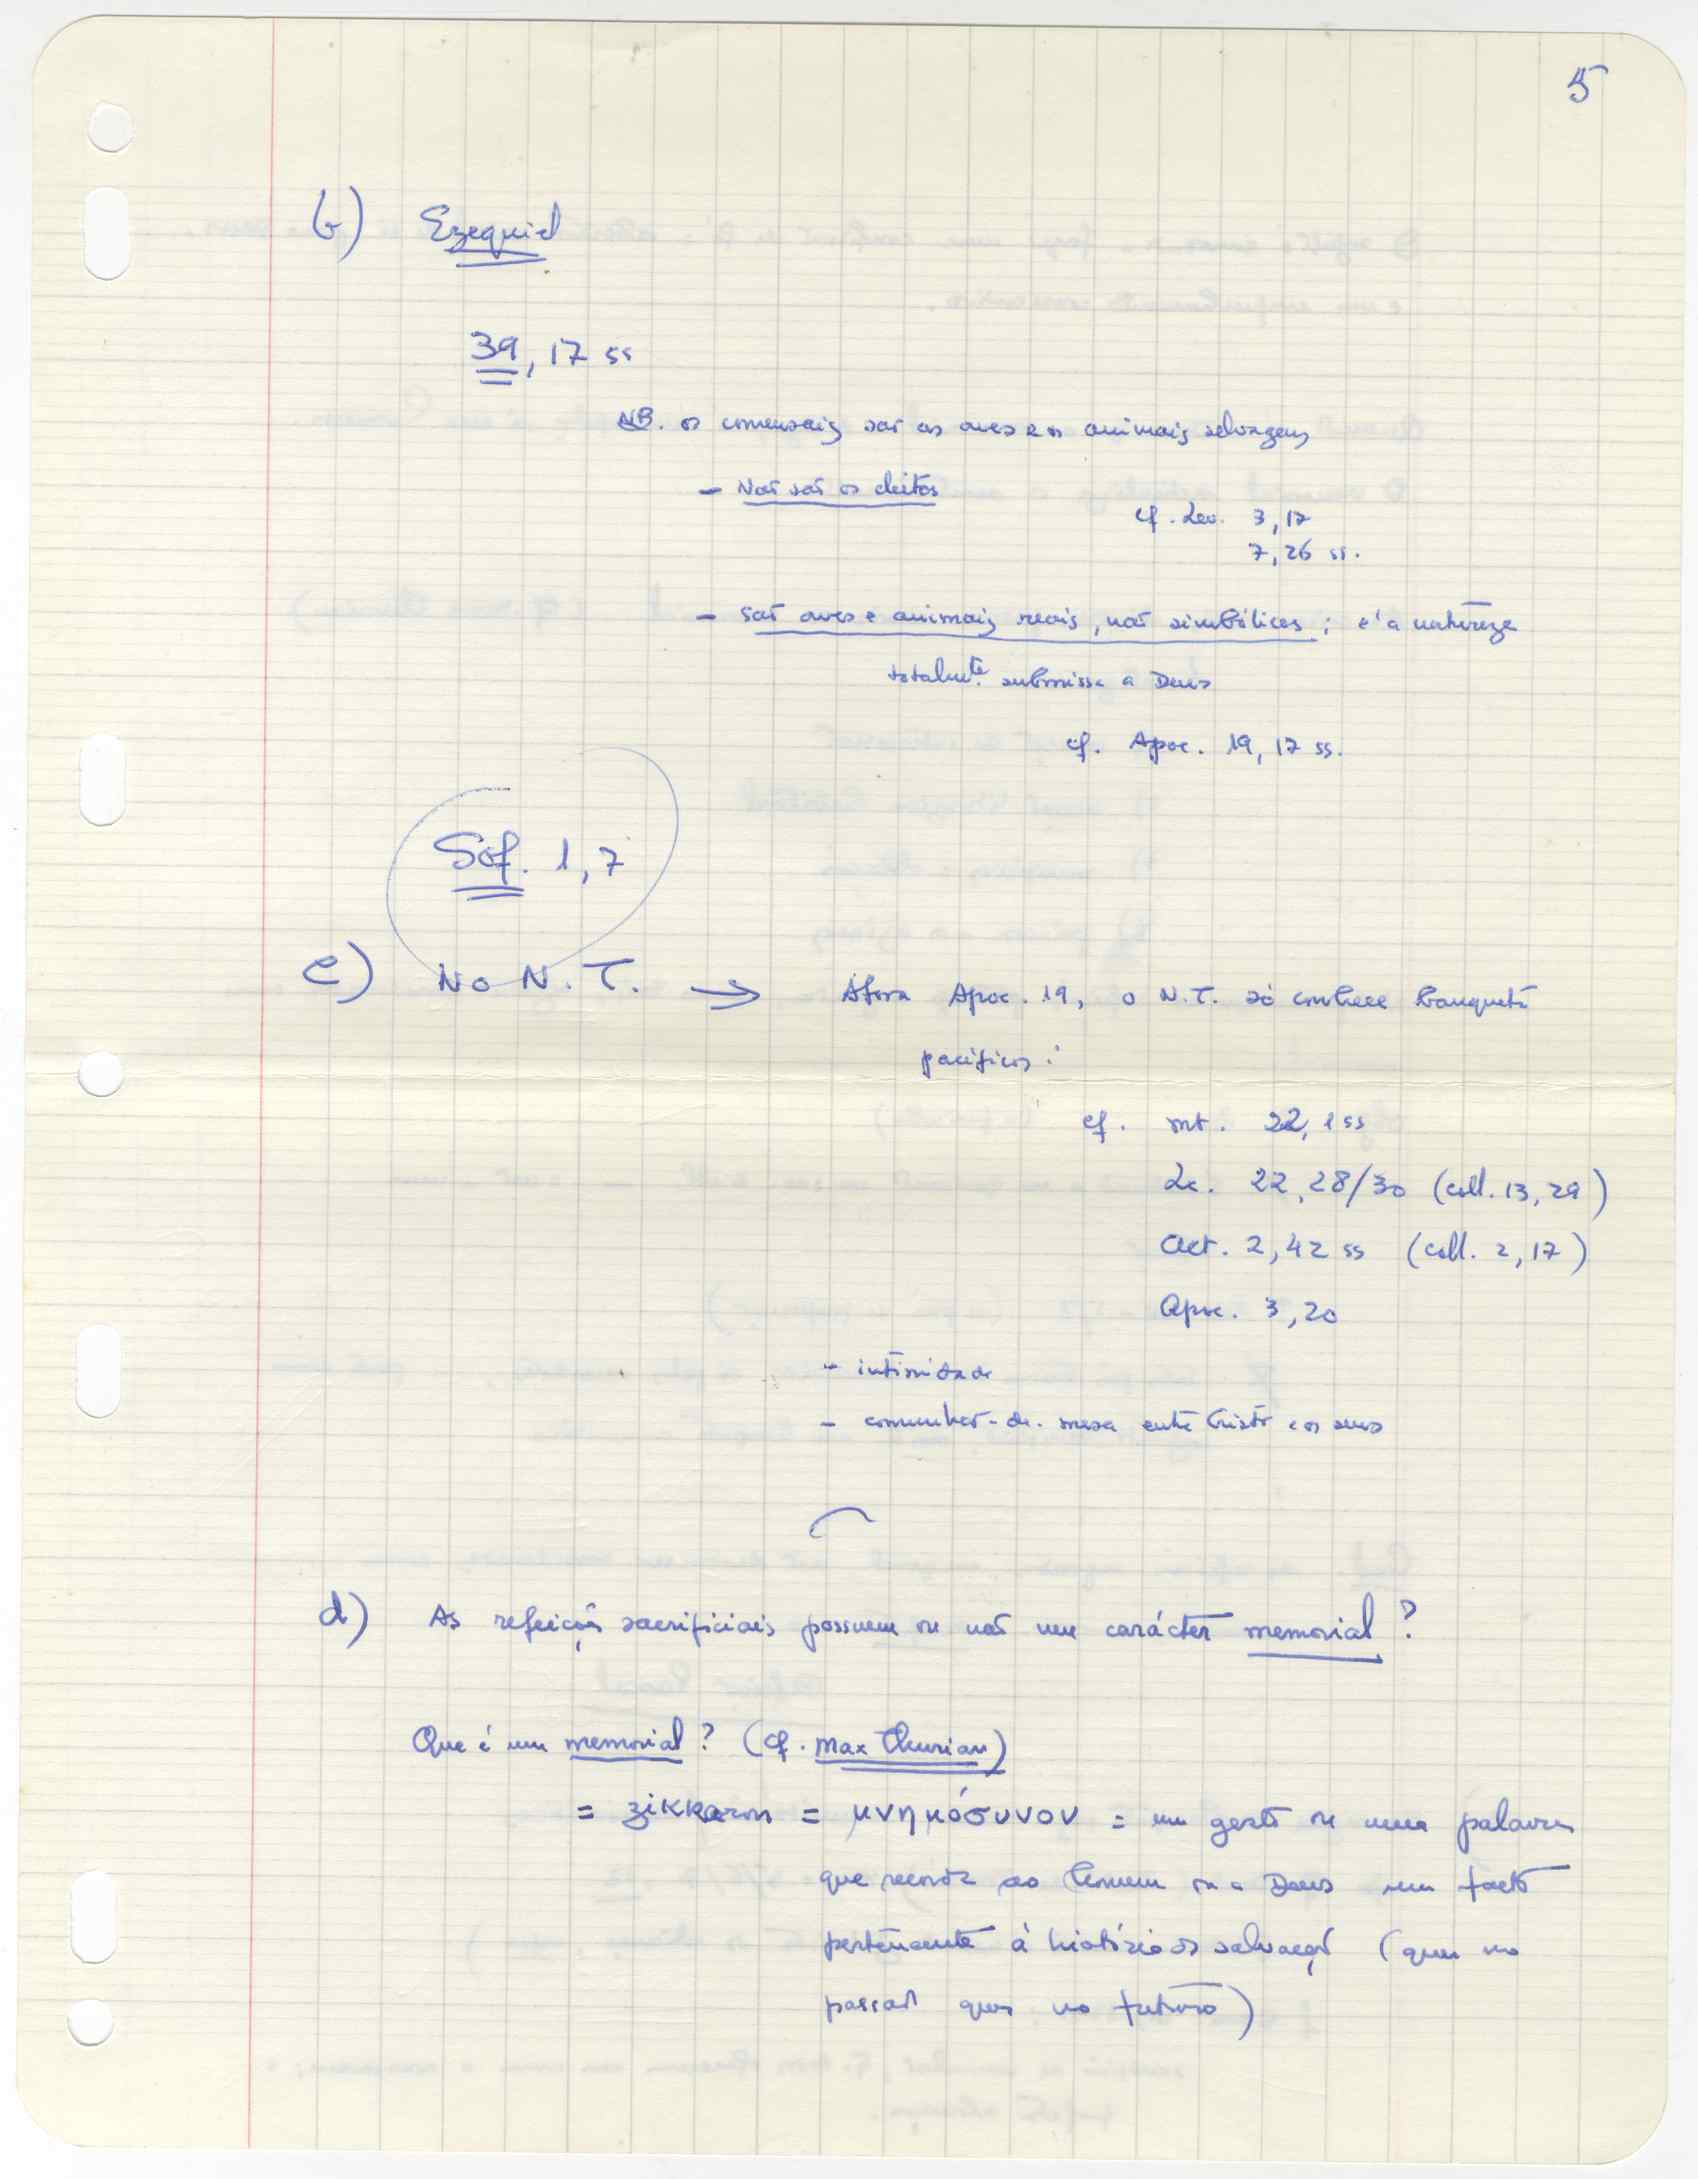 5
b) Ezequiel
39, 17 ss
NB. os comensais são as aves e os animais selvagens
- Não são os eleitos
cf. Lev. 3, 17
7, 26 ss.
- são aves e animais reais, não simbólicos ; é a natureza
totalmte. submissa a Deus
cf. Apoc. 19, 17 ss.
Sof. 1, 7
c) No N. T. → Áfora Apoc. 19, o N.T. só conhece banquetes
pacíficos :
cf. Mt. 22, 1 ss
Lc. 22, 28/30 (coll. 13, 29)
Act. 2, 42 ss (coll. 2, 17)
Apoc. 3, 20
- intimidade
- comunhão-de-mesa entre Cristo e os seus
d) As refeições sacrificiais possuem ou não um carácter memorial ?
Que é um memorial ? (cf. Max Thurian)
= zikkaron = μνημόσυνον = um gesto ou uma palavra
que recorda ao homem ou a Deus um facto
pertencente à história da salvação (quer no
passado quer no futuro)